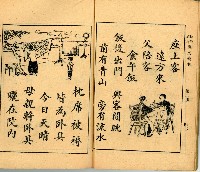 座上客
遠方來
父陪客
食午飯
飯後出門
與客閒眺
前有青山
旁有流水
枕席被褥
皆為臥具
今日天晴
母親將臥具
曬在院內